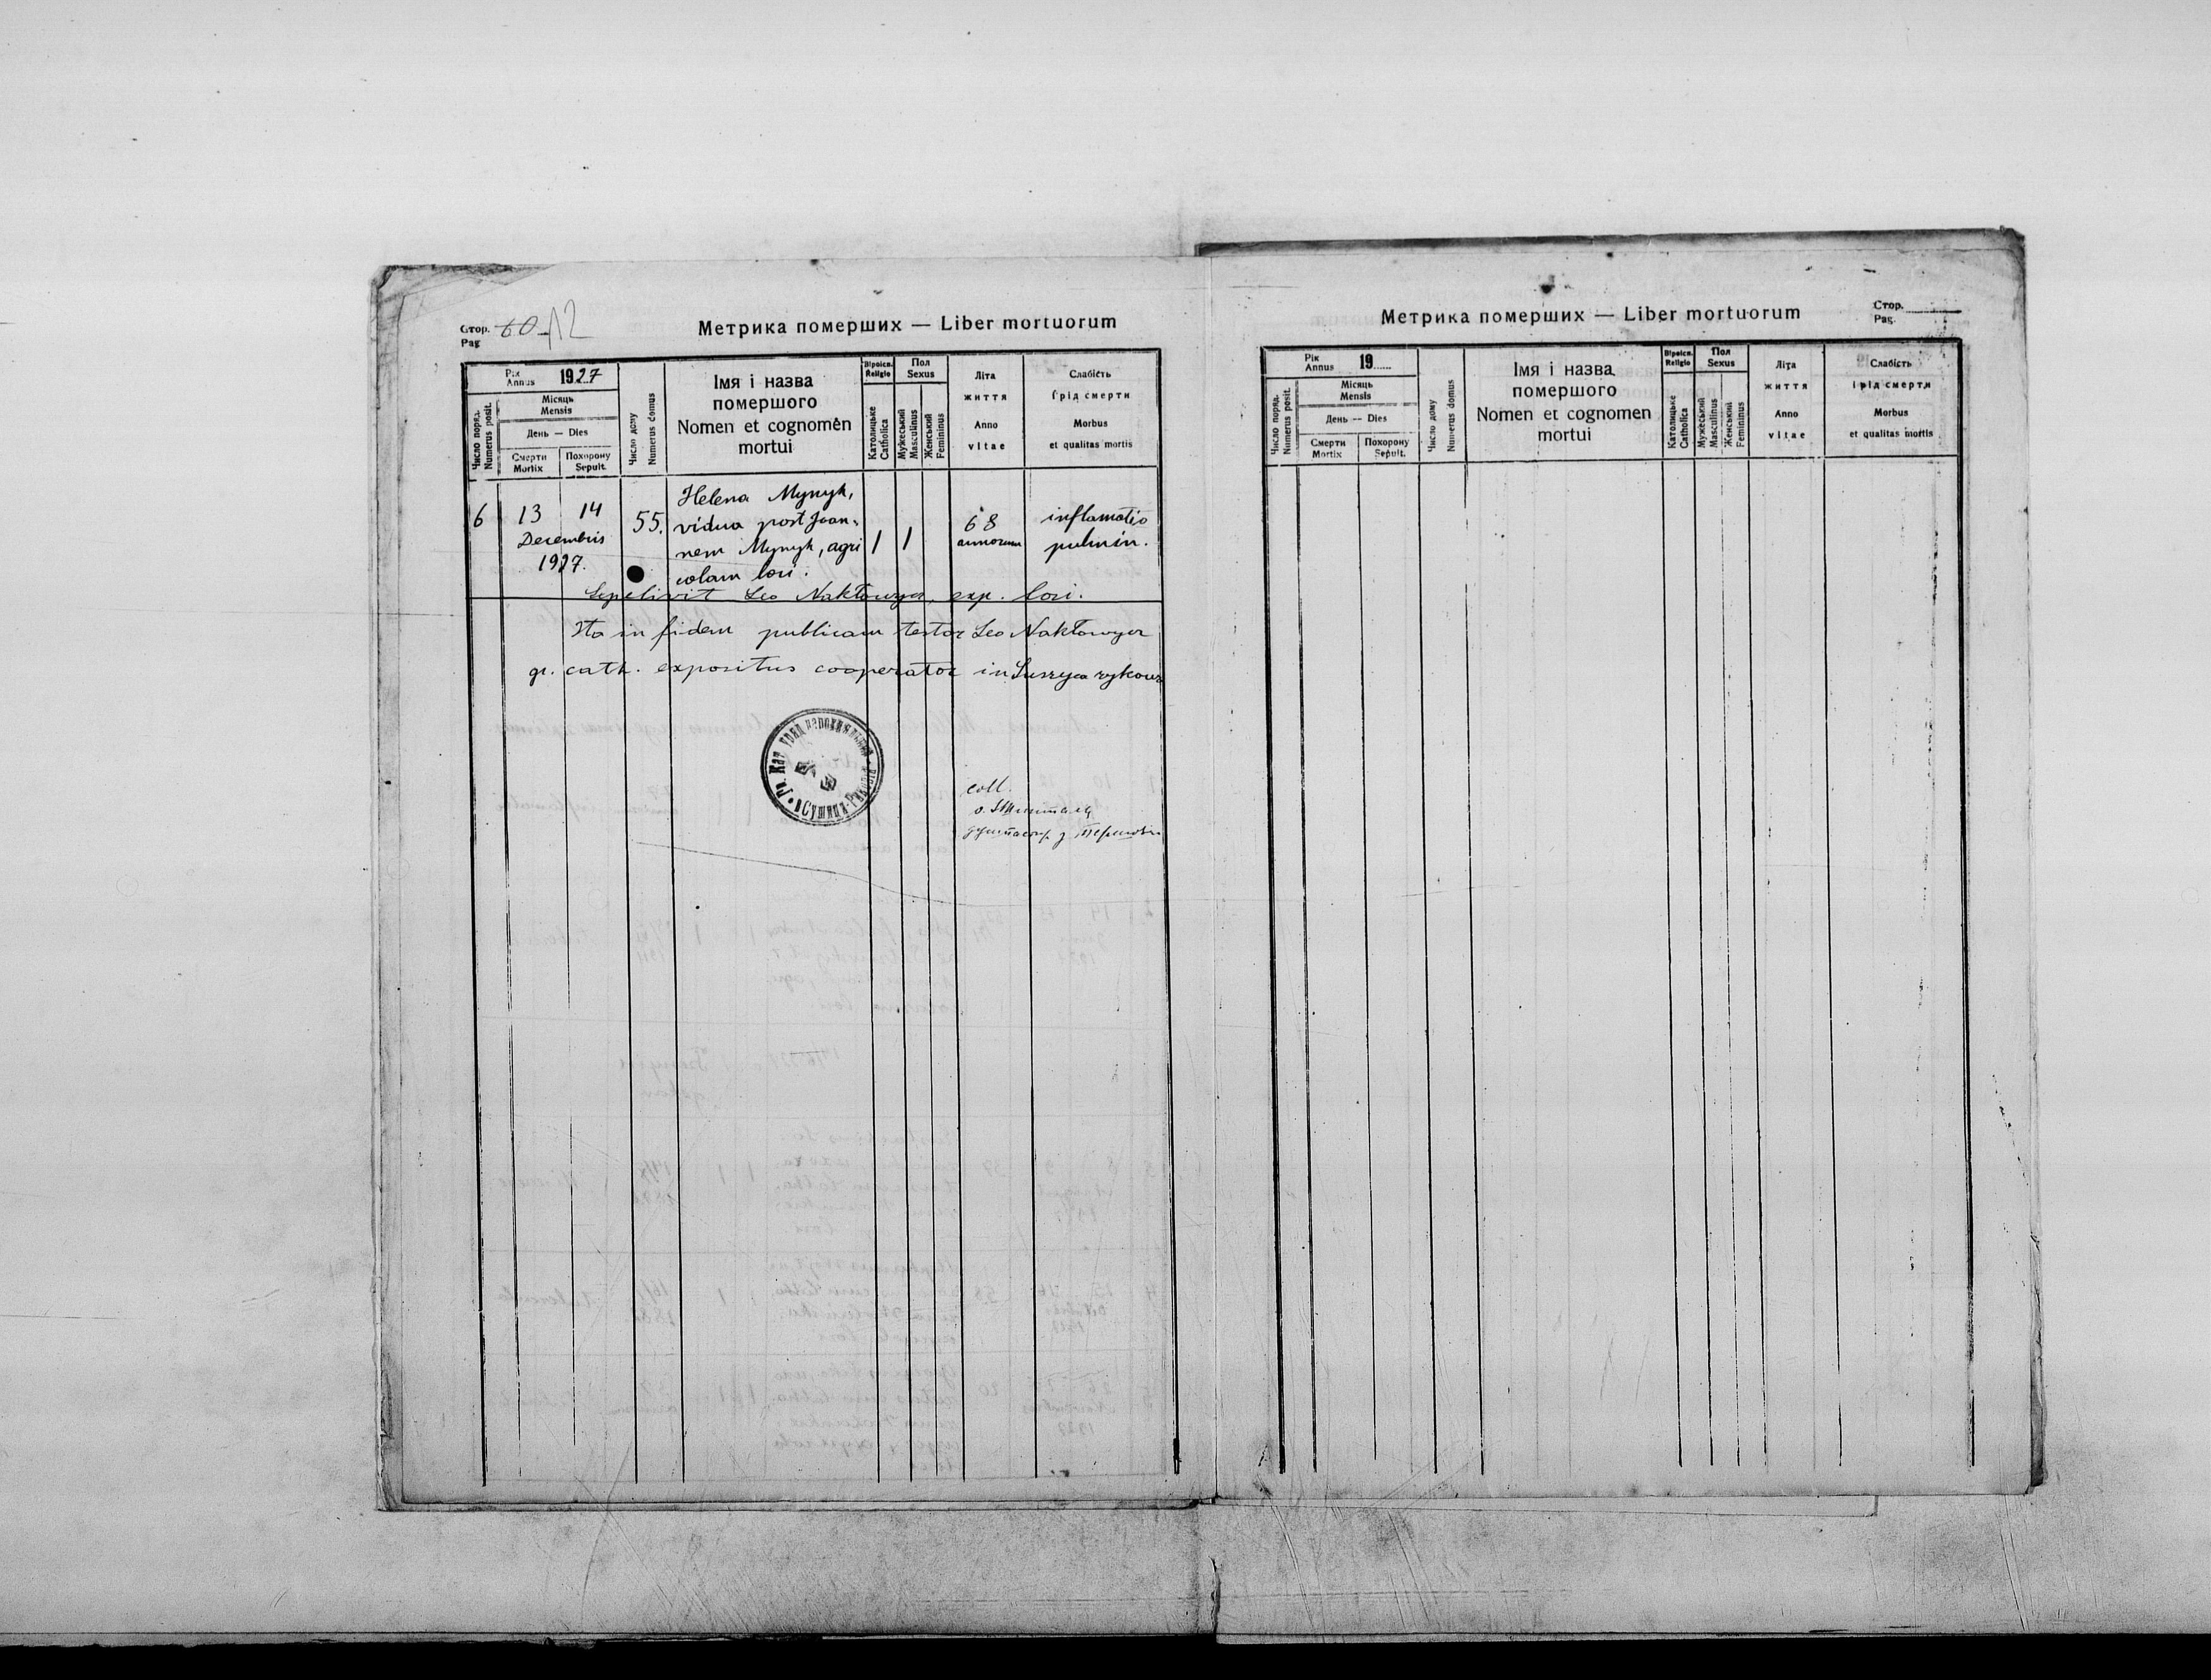 Стор. 60 12
Pag
Метрика померших — Liber mortuorum
Рік
Annus
1927
Число поряд.
Numerus posit.
Місяць
Mensis
День — Dies
Смерти
Mortix
Похорону
Sepult.
Число дому
Numerus domus
Імя і назва
помершого
Nomen et cognomen
mortui
Віроісп.
Religio
Католицьке
Catholica
Пол
Sexus
Мужеський
Masculinus
Женський
Femininus
Літа
життя
Anno
vitae
Слабість
і рід смерти
Morbus
et qualitas mortis
6
13 14
Decembris
1927.
55.
Helena Mynyk,
vidua post Joan-
nem Mynyk, agri
colam loci.
1
1
68
annorum
inflamatio
pulmin.
Sepelivit Leo Nakłowycz, exp. loci.
Ita in fidem publicam testor Leo Nakłowycz
gr. cath. expositus cooperator in Suszyca rykowa
Гр. Кат. Уряд парохіяльний
в Сушиця-Рикова
coll.
о.
з
Метрика померших — Liber mortuorum
Стор.
Pag.
Рік
Annus
19
Число поряд.
Numerus posit.
Місяць
Mensis
День — Dies
Смерти
Mortix
Похорону
Sepult.
Число дому
Numerus domus
Імя і назва
помершого
Nomen et cognomen
mortui
Віроісп.
Religio
Католицьке
Catholica
Пол
Sexus
Мужеський
Masculinus
Женський
Femininus
Літа
життя
Anno
vitae
Слабість
і рід смерти
Morbus
et qualitas mortis